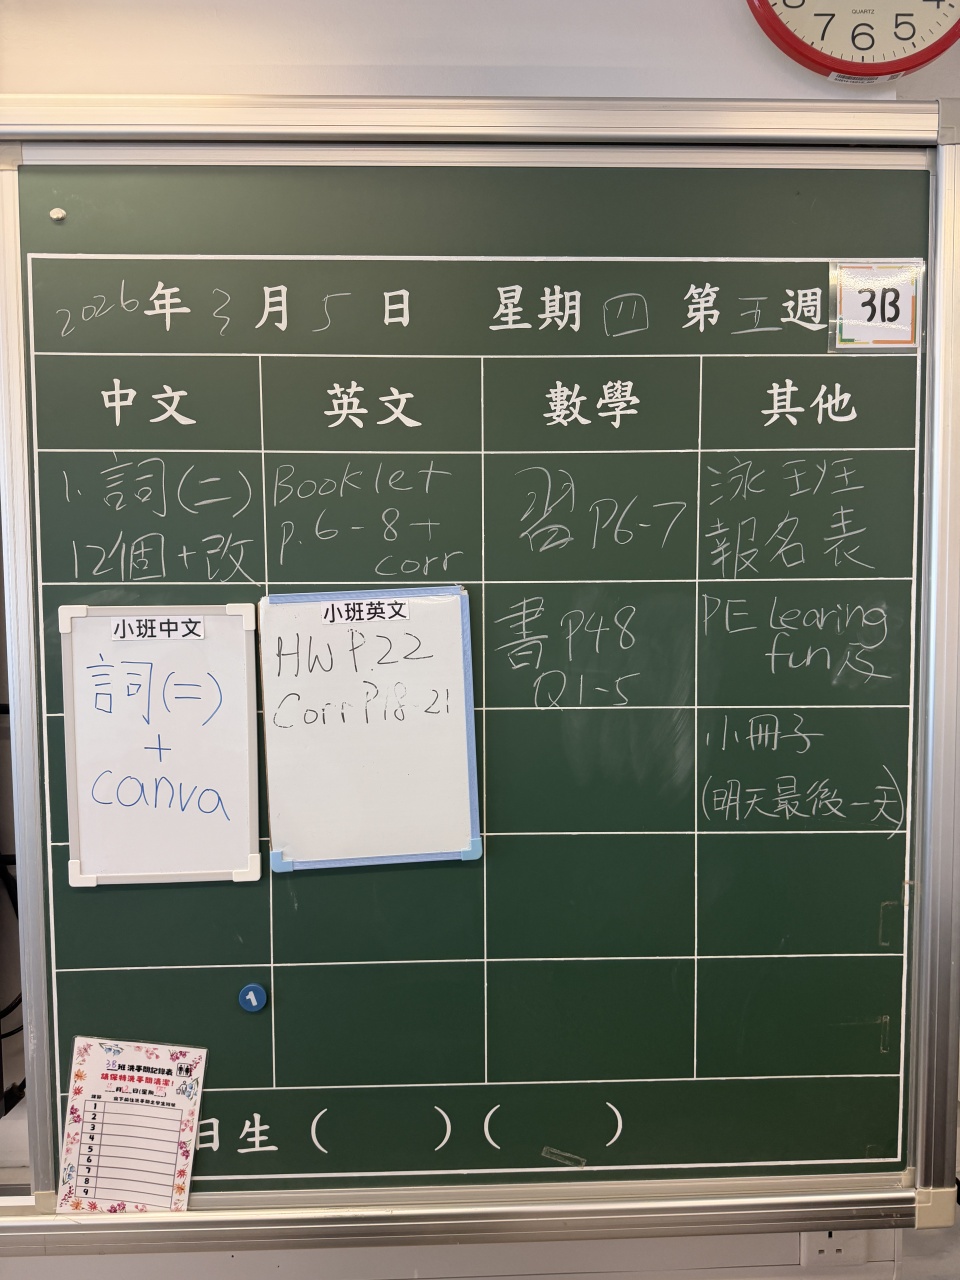 7 6 5
QUARTZ
2026年3月5日 星期四 第五週 3B
中文 英文 數學 其他
1. 詞(二)
12個+改
Booklet
p.6-8+
corr
習 P6-7
泳班
報名表
小班中文
詞(二)
+
canva
小班英文
HW P.22
Corr P18-21
書 P48
Q1-5
PE learing
fun
小冊子
(明天最後一天)
1
3B班洗手間記錄表
請保持洗手間清潔!
1
2
3
4
5
6
7
8
9
日生 ( ) ( )